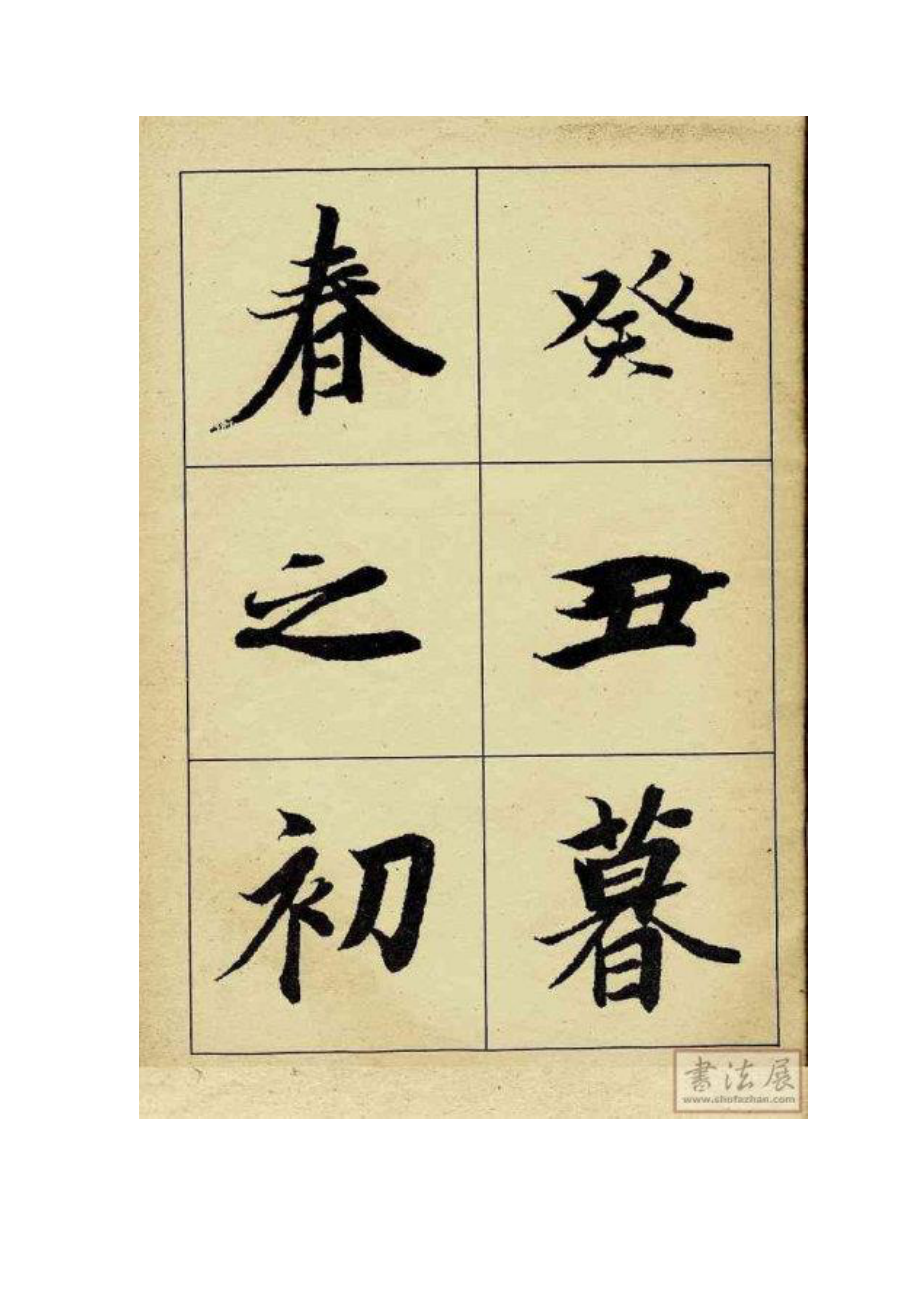 癸丑暮
春之初
書法展
www.shufazhan.com